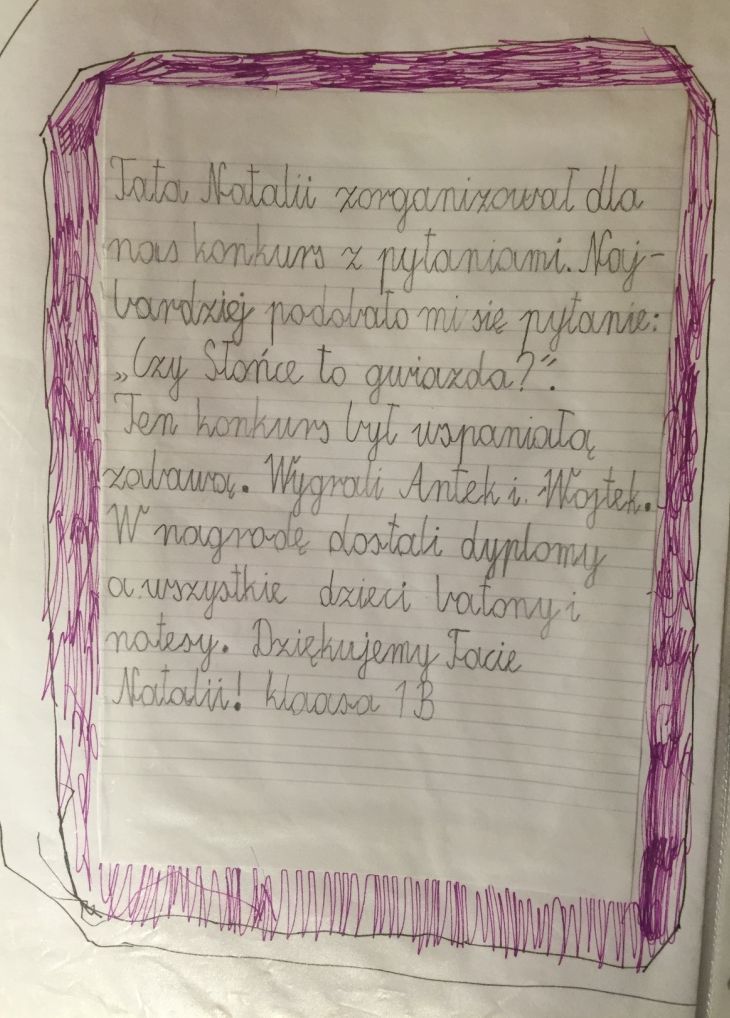 Tata Natalii zorganizował dla
nas konkurs z pytaniami. Naj-
bardziej podobało mi się pytanie:
„Czy Słońce to gwiazda?”.
Ten konkurs był wspaniałą
zabawą. Wygrali Antek i Wojtek.
W nagrodę dostali dyplomy
a wszystkie dzieci batony i
notesy. Dziękujemy Tacie
Natalii! klaasa 1B